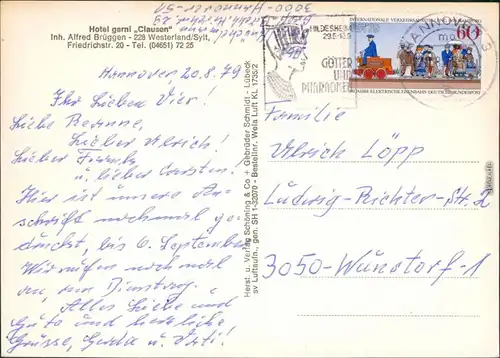 Hotel garni „Clausen"
Inh. Alfred Brüggen - 228 Westerland/Sylt,
Friedrichstr. 20 - Tel. (04651) 72 25
3000-Hannover-51
HILDESHEIM
29.5-
GÖTTER
UND
PHARAONEN
INTERNATIONALE VERKEHRSAUSSTELLUNG
60
100 JAHRE ELEKTRISCHE EISENBAHN DEUTSCHE BUNDESPOST
HANNOVER
Hannover, 20.8.79
Ihr Lieben Vier!
Liebe
Lieber Ulrich!
Lieber Frank
u. lieber Carsten!
Hier ist unsere An-
schrift nochmal ge-
bis 6. September
Wir rufen noch mal
an, am Dienstag.
Alles Liebe und
Gute und herzliche
Grüsse, Gerda und
Herst. u. Verlag Schöning & Co + Gebrüder Schmidt - Lübeck
sv Luftaufn., gen. SH 1-32070 - Bestellnr. Wela Luft KL 1735/2
Familie
Ulrich Löpp
Ludwig-Richter-Str. 2
3050-Wunstorf-1